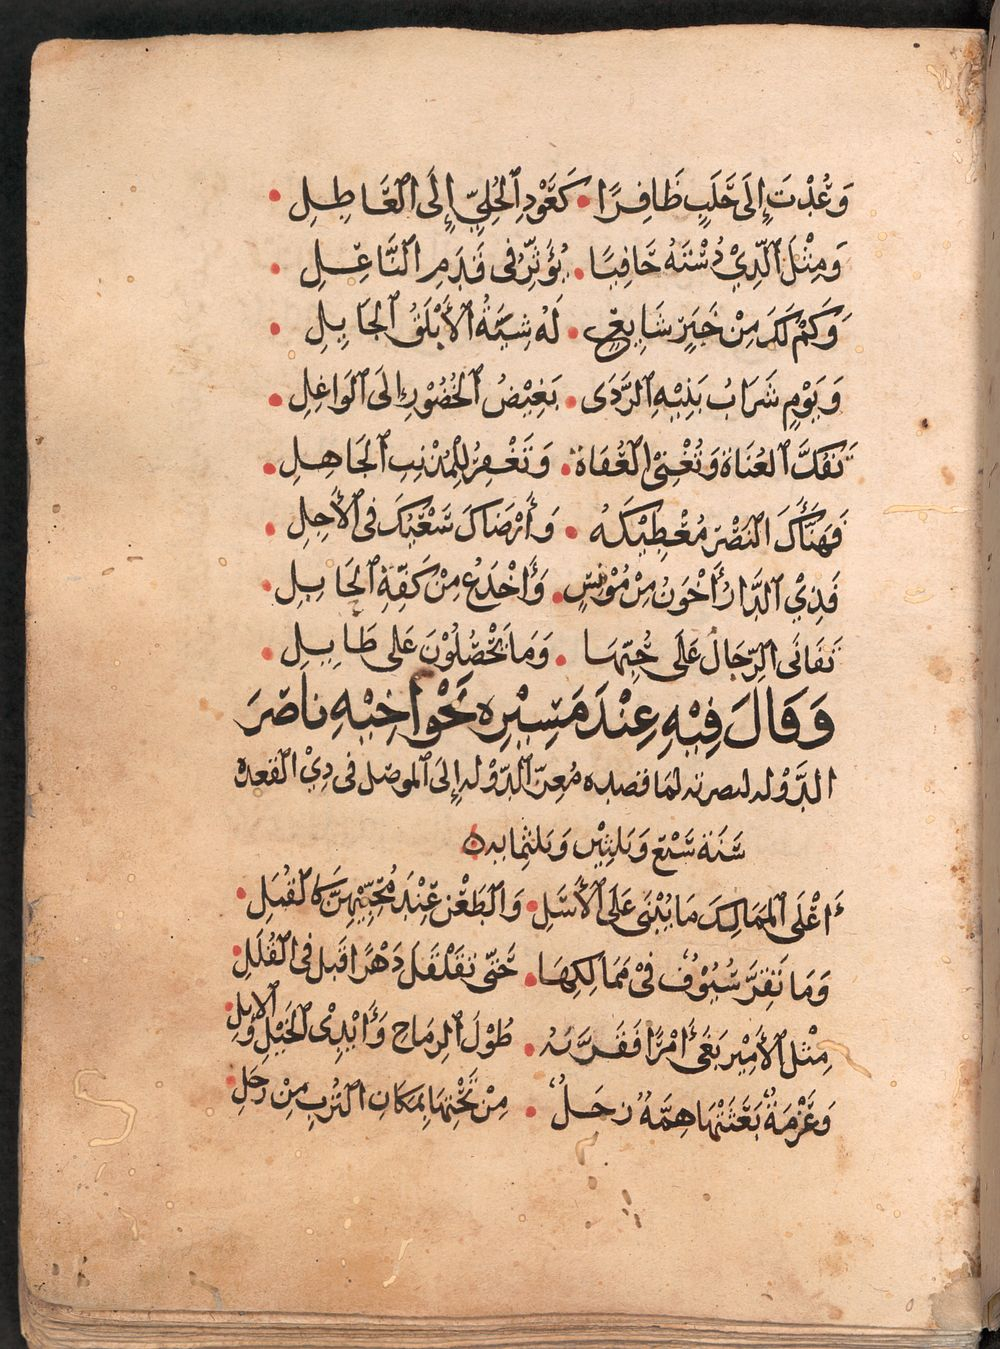 وَعُدْتَ إِلَى حَلَبٍ ظَافِرًا • كَعَوْدِ الْحُلِيِّ إِلَى الْعَاطِلِ •
وَمِثْلَ الَّذِيْ دُسْتَهُ حَافِيًا • يُؤَثِّرُ فِي قَدَمِ النَّاعِلِ •
وَكَمْ لَكَ مِنْ خَبَرٍ شَايِعٍ • لَهُ شِيَةُ الْأَبْلَقِ الْجَايِلِ •
وَيَوْمٍ شَرَابُ بَنِيْهِ الرَّدَى • بَغِيْضُ الْحُضُوْرِ إِلَى الْوَاغِلِ •
تَفُكُّ الْعُنَاةَ وَتُغْنِي الْعُفَاةَ • وَتَغْفِرُ لِلْمُذْنِبِ الْجَاهِلِ •
فَهَنَّأَكَ النَّصْرَ مُعْطِيْكَهُ • وَأَرْضَاكَ سَعْيُكَ فِي الْأَجِلِ •
فَذِيْ الدَّارُ أَخْوَنُ مِنْ مُوْمِسٍ • وَأَخْدَعُ مِنْ كَفَّةِ الْحَابِلِ •
تَفَانَى الرِّجَالُ عَلَى حُبِّهَا • وَمَا يَحْصُلُوْنَ عَلَى طَايِلِ •
وَقَالَ فِيْهِ عِنْدَ مَسِيْرِهِ نَحْوَ اخِيْهِ نَاصِرِ
الدَّوْلَه لنصرته لما قصده مُعِزُّ الدَّوْلَه إِلَى الموصل فى ذِيْ القعده
سَنَة سَبْع وَثلثِيْن وَثلثمايه
أَعْلَى الْمَمَالِكَ مَا يُبْنَى عَلَى الْأَسَلِ • وَالطَّعْنُ عِنْدَ مُحِبِّيْهِنَّ كَالْقُبَلِ •
وَمَا تَقِرُّ سُيُوْفٌ فِيْ مَمَالِكِهَا • حَتَّى تقَلْقَلَ دَهْرًا قَبلُ فِي الْقُلَلِ •
مِثْلُ الْأَمِيْرِ بَغَى أَمْرًا فَقَرَّبَهُ • طُوْلُ الرِّمَاحِ وَأَيْدِى الْخَيْلِ وَالابِلِ •
وَعَزْمَةٌ بَعَثَتْهَا هِمَّةٌ زحَلٌ • مِنْ تَحْتِهَا بِمَكَانِ التُّرْبِ مِنْ زحَلِ •